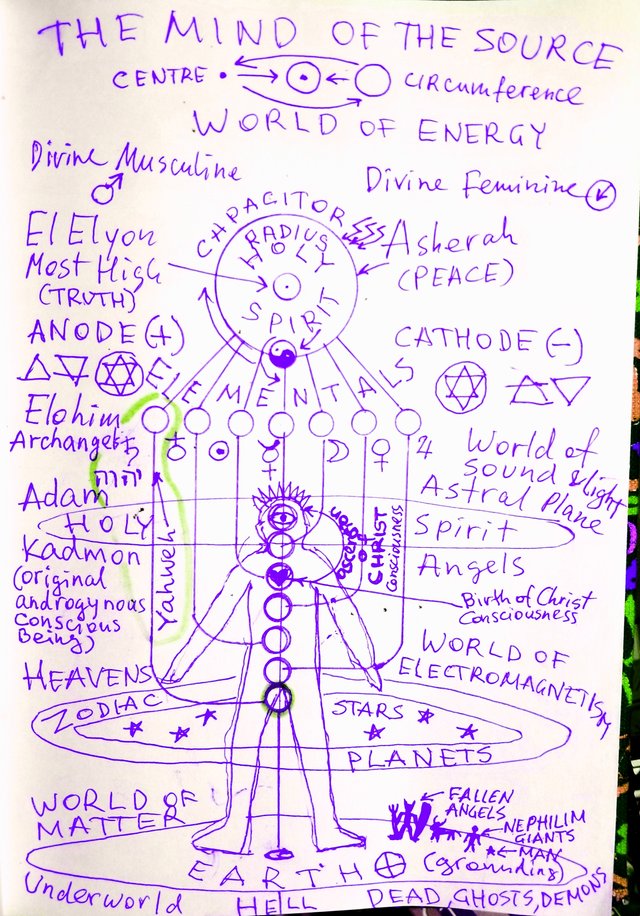 THE MIND OF THE SOURCE
CENTRE
CIRcumference
WORLD OF ENERGY
Divine Musculine
Divine Feminine
CAPACITOR
RADIUS
HOLY
SPIRIT
El Elyon
Most High
(TRUTH)
Asherah
(PEACE)
ANODE (+)
CATHODE (-)
ELEMENTALS
Elohim
Archangels
יהוה
Yahweh
World of
Sound & light
Astral Plane
Adam
Kadmon
(original
androgynous
conscious
Being)
HOLY
Spirit
Angels
ascension
of
CHRIST
Consciousness
Birth of Christ
Consciousness
HEAVENS
WORLD OF
ELECTROMAGNETISM
ZODIAC
STARS
PLANETS
WORLD OF
MATTER
FALLEN
ANGELS
NEPHILIM
GIANTS
MAN
EARTH
(grounding)
Underworld
HELL
DEAD, GHOSTS, DEMONS